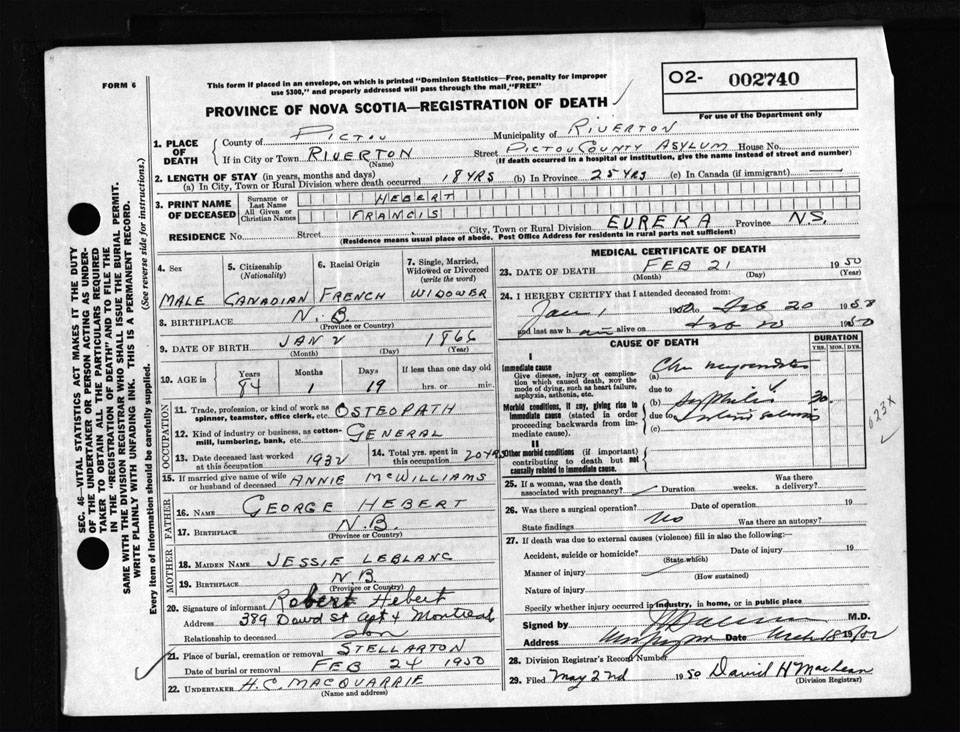 FORM 6
This form if placed in an envelope, on which is printed "Dominion Statistics—Free, penalty for improper
use $300," and properly addressed will pass through the mail, "FREE"
PROVINCE OF NOVA SCOTIA—REGISTRATION OF DEATH
02- 002740
For use of the Department only
1. PLACE OF DEATH
County of PICTOU Municipality of RIVERTON
If in City or Town RIVERTON (Name) Street PICTOU COUNTY ASYLUM House No.
(If death occurred in a hospital or institution, give the name instead of street and number)
2. LENGTH OF STAY (in years, months and days)
(a) In City, Town or Rural Division where death occurred 18 YRS (b) In Province 25 YRS (c) In Canada (if immigrant)
3. PRINT NAME OF DECEASED
Surname or Last Name HEBERT
All Given or Christian Names FRANCIS
RESIDENCE No. Street City, Town or Rural Division EUREKA Province N.S.
(Residence means usual place of abode. Post Office Address for residents in rural parts not sufficient)
4. Sex MALE
5. Citizenship (Nationality) CANADIAN
6. Racial Origin FRENCH
7. Single, Married, Widowed or Divorced (write the word) WIDOWER
8. BIRTHPLACE N.B.
(Province or Country)
9. DATE OF BIRTH JAN 2 1866
(Month) (Day) (Year)
10. AGE in Years Months Days If less than one day old
84 1 19 hrs. or min.
OCCUPATION
11. Trade, profession or kind of work as spinner, teamster, office clerk, etc. OSTEOPATH
12. Kind of industry or business, as cotton-mill, lumbering, bank, etc. GENERAL
13. Date deceased last worked at this occupation 1932
14. Total yrs. spent in this occupation 20 YRS
15. If married give name of wife or husband of deceased ANNIE McWILLIAMS
FATHER
16. NAME GEORGE HEBERT
17. BIRTHPLACE N.B.
(Province or Country)
MOTHER
18. MAIDEN NAME JESSIE LEBLANC
19. BIRTHPLACE N.B.
(Province or Country)
20. Signature of informant Robert Hebert
Address 389 David St Apt 4 Montreal
Relationship to deceased son
21. Place of burial, cremation or removal STELLARTON
Date of burial or removal FEB 24 1950
22. UNDERTAKER H.C. MACQUARRIE
(Name and address)
MEDICAL CERTIFICATE OF DEATH
23. DATE OF DEATH FEB 21 1950
(Month) (Day) (Year)
24. I HEREBY CERTIFY that I attended deceased from:
Jan 1 1950 to Feb 20 1950
and last saw him alive on Feb 20 1950
CAUSE OF DEATH
DURATION
YRS. MOS. DYS.
I
Immediate cause
Give disease, injury or complication which caused death, NOT the mode of dying, such as heart failure, asphyxia, asthenia, etc.
(a) Chr myocarditis
due to
Morbid conditions, if any, giving rise to immediate cause (stated in order proceeding backwards from immediate cause).
(b) Syphilis 30
due to
(c)
II
Other morbid conditions (if important) contributing to death but not causally related to immediate cause.
023X
25. If a woman, was the death associated with pregnancy? Duration weeks. Was there a delivery?
26. Was there a surgical operation? Date of operation 19
State findings No Was there an autopsy?
27. If death was due to external causes (violence) fill in also the following:—
Accident, suicide or homicide? Date of injury 19
(State which)
Manner of injury
(How sustained)
Nature of injury
Specify whether injury occurred in industry, in home, or in public place
Signed by M.D.
Address Date March 18
28. Division Registrar's Record Number
29. Filed May 2nd 1950 David H Maclean
(Division Registrar)
SEC. 46—VITAL STATISTICS ACT MAKES IT THE DUTY
OF THE UNDERTAKER OR PERSON ACTING AS UNDER-
TAKER TO OBTAIN ALL THE PARTICULARS REQUIRED
IN THE "REGISTRATION OF DEATH" AND TO FILE THE
SAME WITH THE DIVISION REGISTRAR WHO SHALL ISSUE THE BURIAL PERMIT.
WRITE PLAINLY WITH UNFADING INK. THIS IS A PERMANENT RECORD.
Every item of information should be carefully supplied. (See reverse side for instructions.)